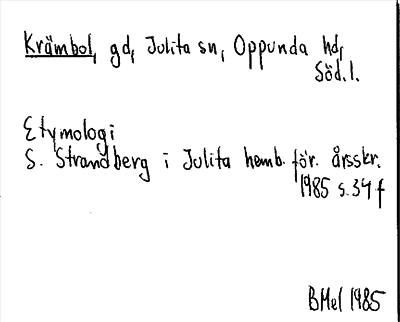 Krämbol, gd, Julita sn, Oppunda hd,
Söd.l.
Etymologi
S. Strandberg i Julita hemb. för. årsskr.
1985 s. 34 f
BMel 1985